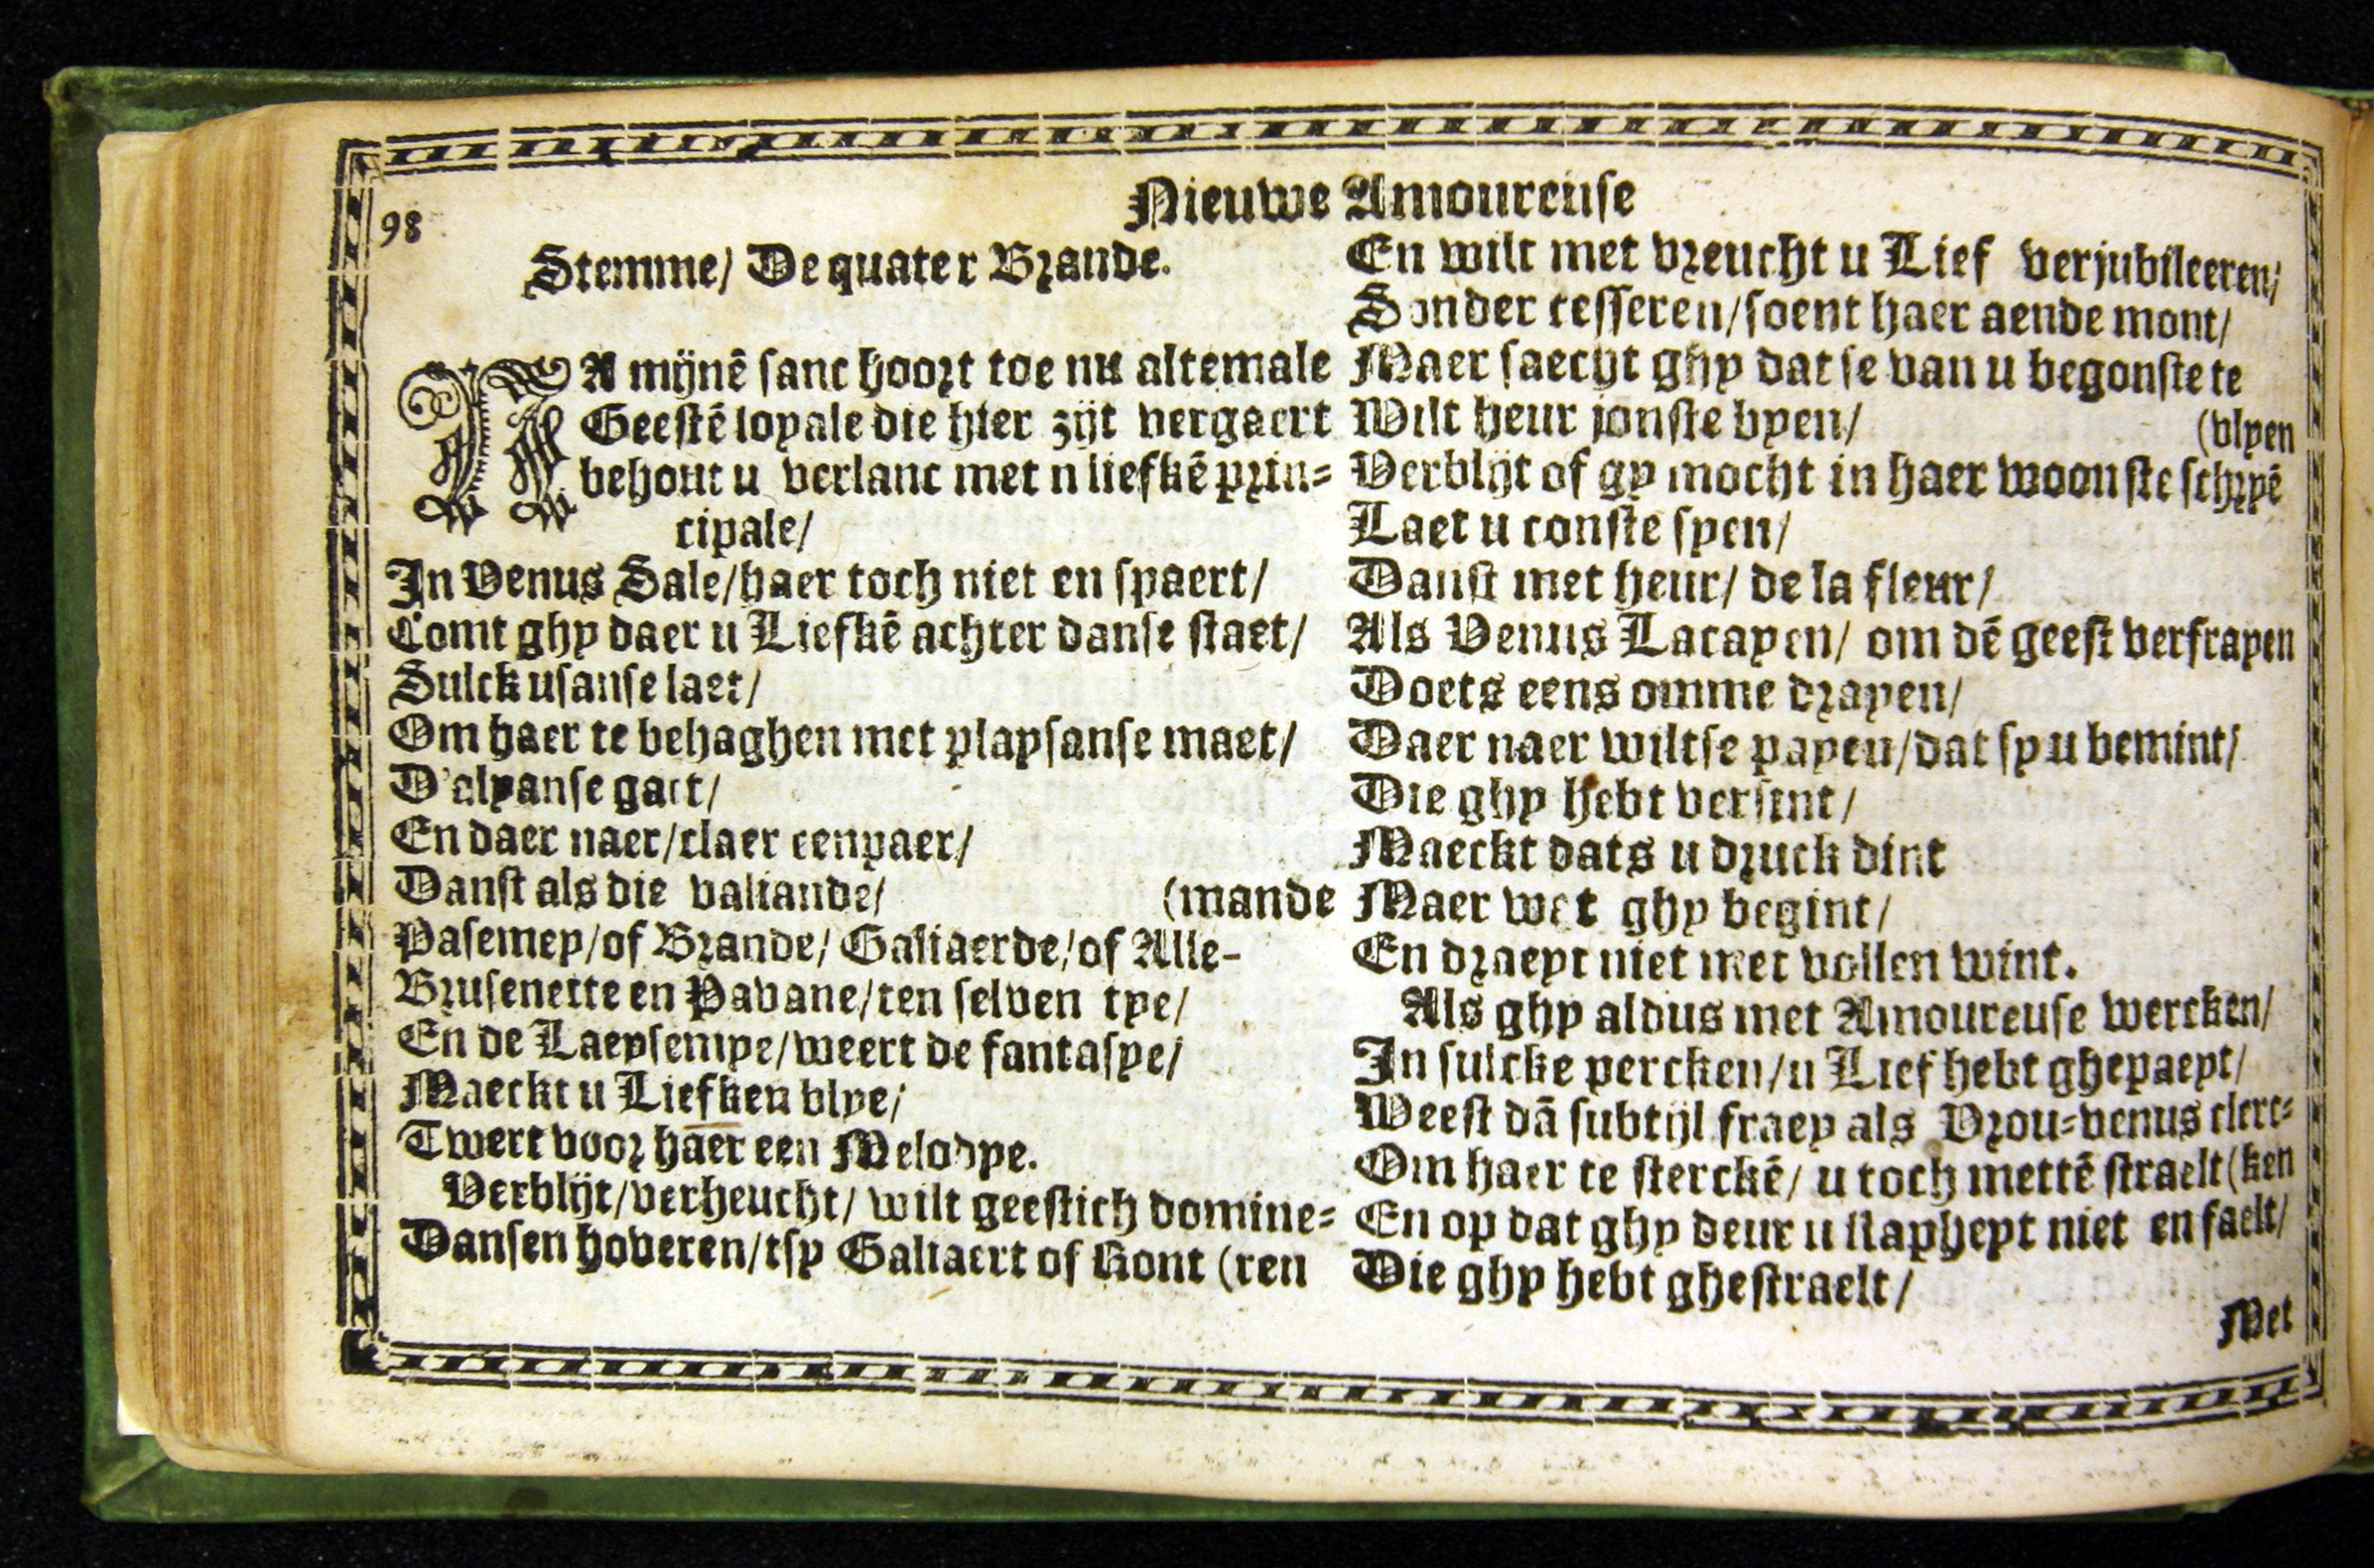 98
Nieuwe Amoureuse
Stemme/ De quater Brande.
NA mijnē sanc hoort toe nu altemale
Geestē loyale die hier zijt vergaert
behout u verlanc met n liefkē prin=
cipale/
In Venus Sale/haer toch niet en spaert/
Comt ghy daer u Liefkē achter danse staet/
Sulck usanse laet/
Om haer te behaghen met playsanse maet/
D'alyanse gaet/
En daer naer/claer eenpaer/
Danst als die valiande/ (mande
Pasemey/of Brande/ Galiaerde/of Alle-
Brusenette en Pavane/ten selven tye/
En de Laeysempe/weert de fantasye/
Maeckt u Liefken blye/
Twert voor haer een Melodye.
Verblijt/verheucht/ wilt geestich domine=
Dansen hoveren/tsy Galiaert of Kont (ren
En wilt met vreucht u Lief verjubileeren/
Sonder cesseren/soent haer aende mont/
Maer saecht ghy dat se van u begonste te
Wilt heur jonste vyen/ (vlyen
Verblijt of gy mocht in haer woonste schryē
Laet u conste spen/
Danst met heur/ de la fleur/
Als Venus Lacayen/ om dē geest verfrayen
Doets eens omme drayen/
Daer naer wiltse payen/dat sy u bemint/
Die ghy hebt versint/
Maeckt dats u druck dint
Maer wat ghy begint/
En draeyt niet met vollen wint.
Als ghy aldus met Amoureuse wercken/
In sulcke percken/u Lief hebt ghepaeyt/
Weest dā subtijl fraey als Vrou=venus clerc=
Om haer te sterckē/ u toch mettē straelt (ken
En op dat ghy deur u slapheyt niet en faelt/
Die ghy hebt ghestraelt/
Met